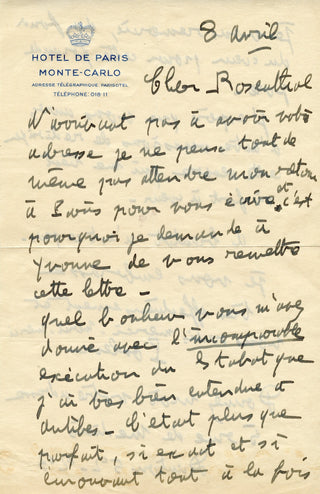 8 avril
HOTEL DE PARIS
MONTE-CARLO
ADRESSE TÉLÉGRAPHIQUE PARISOTEL
TÉLÉPHONE: 018 11
Cher Rosenthal
N'arrivant pas à avoir votre
adresse je ne peux tout de
même pas attendre mon retour
à Paris pour vous écrire et c'est
pourquoi je demande à
Yvonne de vous remettre
cette lettre -
quel bonheur vous m'avez
donné avec l'incomparable
exécution du Stabat que
j'ai très bien entendue d'
Antibes - C'était plus que
parfait, si exact et si
émouvant tout à la fois